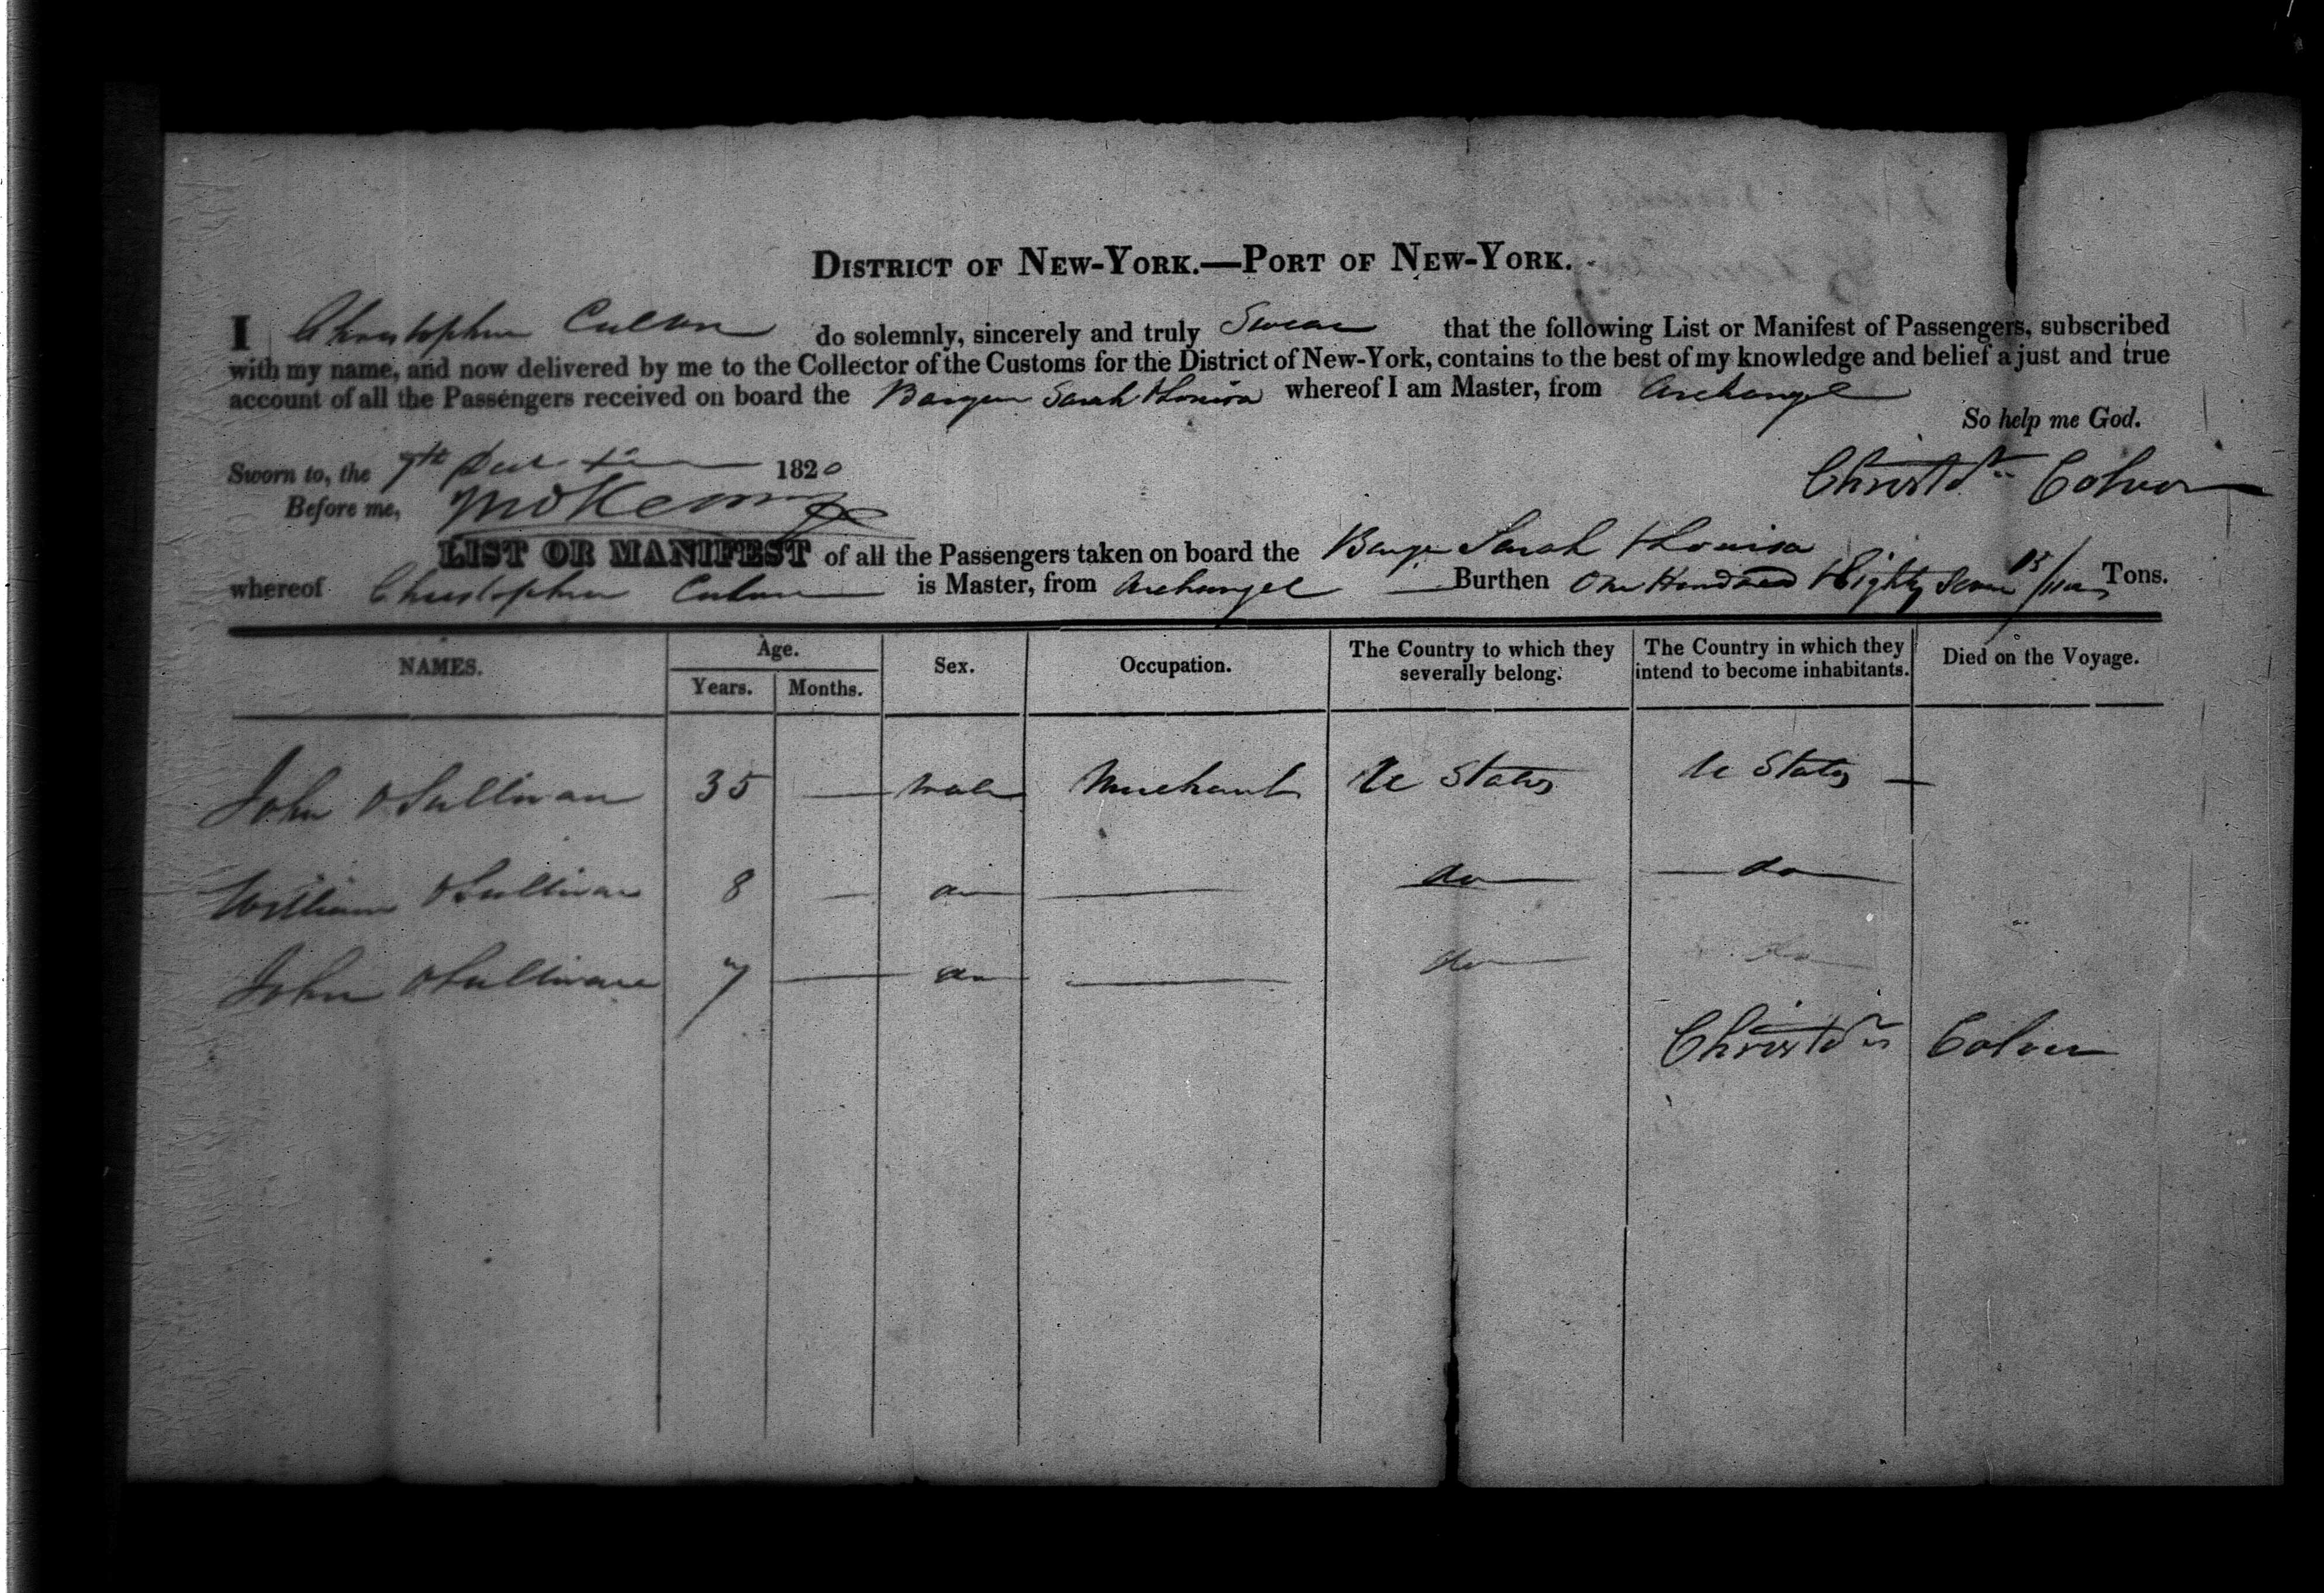 DISTRICT OF NEW-YORK.—PORT OF NEW-YORK.
I Christopher do solemnly, sincerely and truly Swear that the following List or Manifest of Passengers, subscribed
with my name, and now delivered by me to the Collector of the Customs for the District of New-York, contains to the best of my knowledge and belief a just and true
account of all the Passengers received on board the Sarah & Louisa whereof I am Master, from Archangel
So help me God.
Sworn to, the 7th 1820
Before me,
Colver
LIST OR MANIFEST of all the Passengers taken on board the Sarah & Louisa
whereof Christopher is Master, from Archangel Burthen One Hundred & Eighty Seven Tons.
NAMES. Age. Sex. Occupation. The Country to which they severally belong. The Country in which they intend to become inhabitants. Died on the Voyage.
Years. Months.
John O Sullivan 35 — male Merchant U States U States —
William O Sullivan 8 — do — do do
John O Sullivan 7 — do — do do
Colver